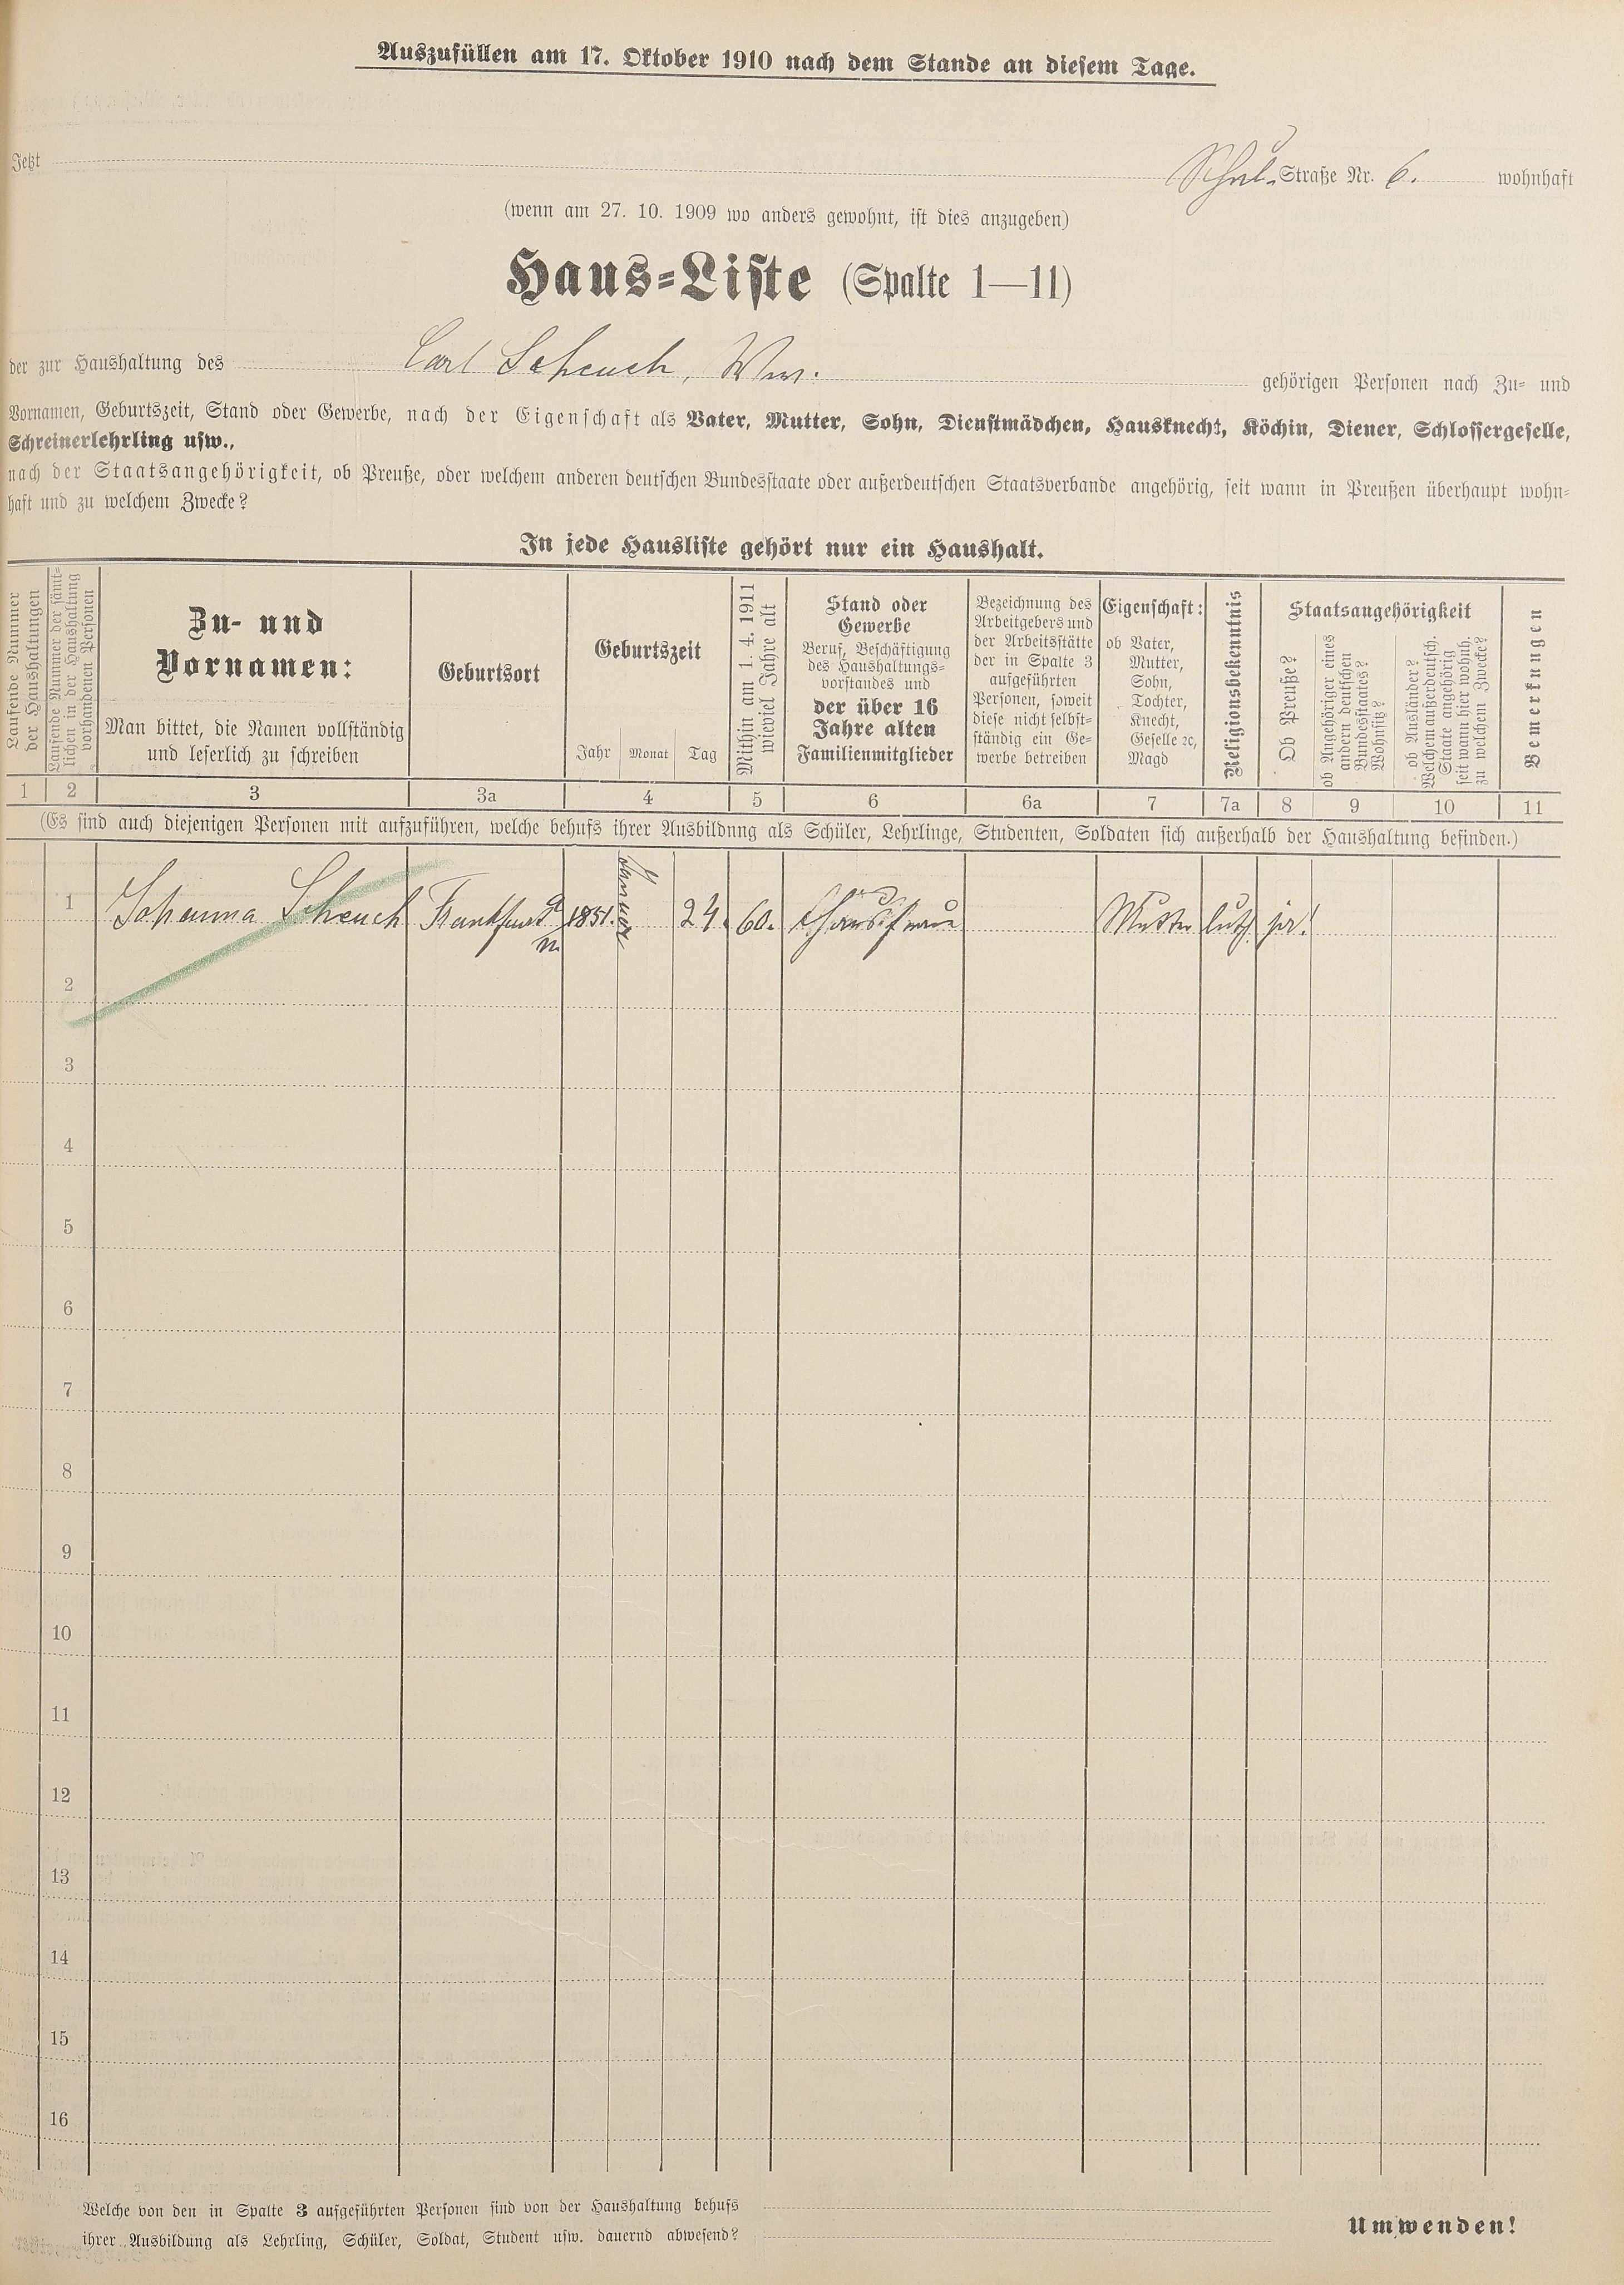 Auszufüllen am 17. Oktober 1910 nach dem Stande an diesem Tage.
Jetzt Schul-Straße Nr. 6. wohnhaft
(wenn am 27. 10. 1909 wo anders gewohnt, ist dies anzugeben)
Haus-Liste (Spalte 1—11)
der zur Haushaltung des Carl Scheuch, Wwe. gehörigen Personen nach Zu- und
Vornamen, Geburtszeit, Stand oder Gewerbe, nach der Eigenschaft als Vater, Mutter, Sohn, Dienstmädchen, Hausknecht, Köchin, Diener, Schlossergeselle,
Schreinerlehrling usw.,
nach der Staatsangehörigkeit, ob Preuße, oder welchem anderen deutschen Bundesstaate oder außerdeutschen Staatsverbande angehörig, seit wann in Preußen überhaupt wohn-
haft und zu welchem Zwecke?
In jede Hausliste gehört nur ein Haushalt.
Laufende Nummer
der Haushaltungen
Laufende Nummer der sämt-
lichen in der Haushaltung
vorhandenen Personen
Zu- und
Vornamen:
Man bittet, die Namen vollständig
und leserlich zu schreiben
Geburtsort
Geburtszeit
Jahr Monat Tag
Mithin am 1. 4. 1911
wieviel Jahre alt
Stand oder
Gewerbe
Beruf, Beschäftigung
des Haushaltungs-
vorstandes und
der über 16
Jahre alten
Familienmitglieder
Bezeichnung des
Arbeitgebers und
der Arbeitsstätte
der in Spalte 3
aufgeführten
Personen, soweit
diese nicht selbst-
ständig ein Ge-
werbe betreiben
Eigenschaft:
ob Vater,
Mutter,
Sohn,
Tochter,
Knecht,
Geselle ꝛc,
Magd
Religionsbekenntnis
Staatsangehörigkeit
Ob Preuße?
ob Angehöriger eines
andern deutschen
Bundesstaates?
Wohnsitz?
ob Ausländer?
Welchem außerdeutsch.
Staate angehörig
seit wann hier wohnh.
zu welchem Zwecke?
Bemerkungen
1 2 3 3a 4 5 6 6a 7 7a 8 9 10 11
(Es sind auch diejenigen Personen mit aufzuführen, welche behufs ihrer Ausbildung als Schüler, Lehrlinge, Studenten, Soldaten sich außerhalb der Haushaltung befinden.)
1 Johanna Scheuch Frankfurt 1851. Januar 24. 60. Hausfrau Mutter luth. ja!
2
3
4
5
6
7
8
9
10
11
12
13
14
15
16
Welche von den in Spalte 3 aufgeführten Personen sind von der Haushaltung behufs
ihrer Ausbildung als Lehrling, Schüler, Soldat, Student usw. dauernd abwesend?
Umwenden!